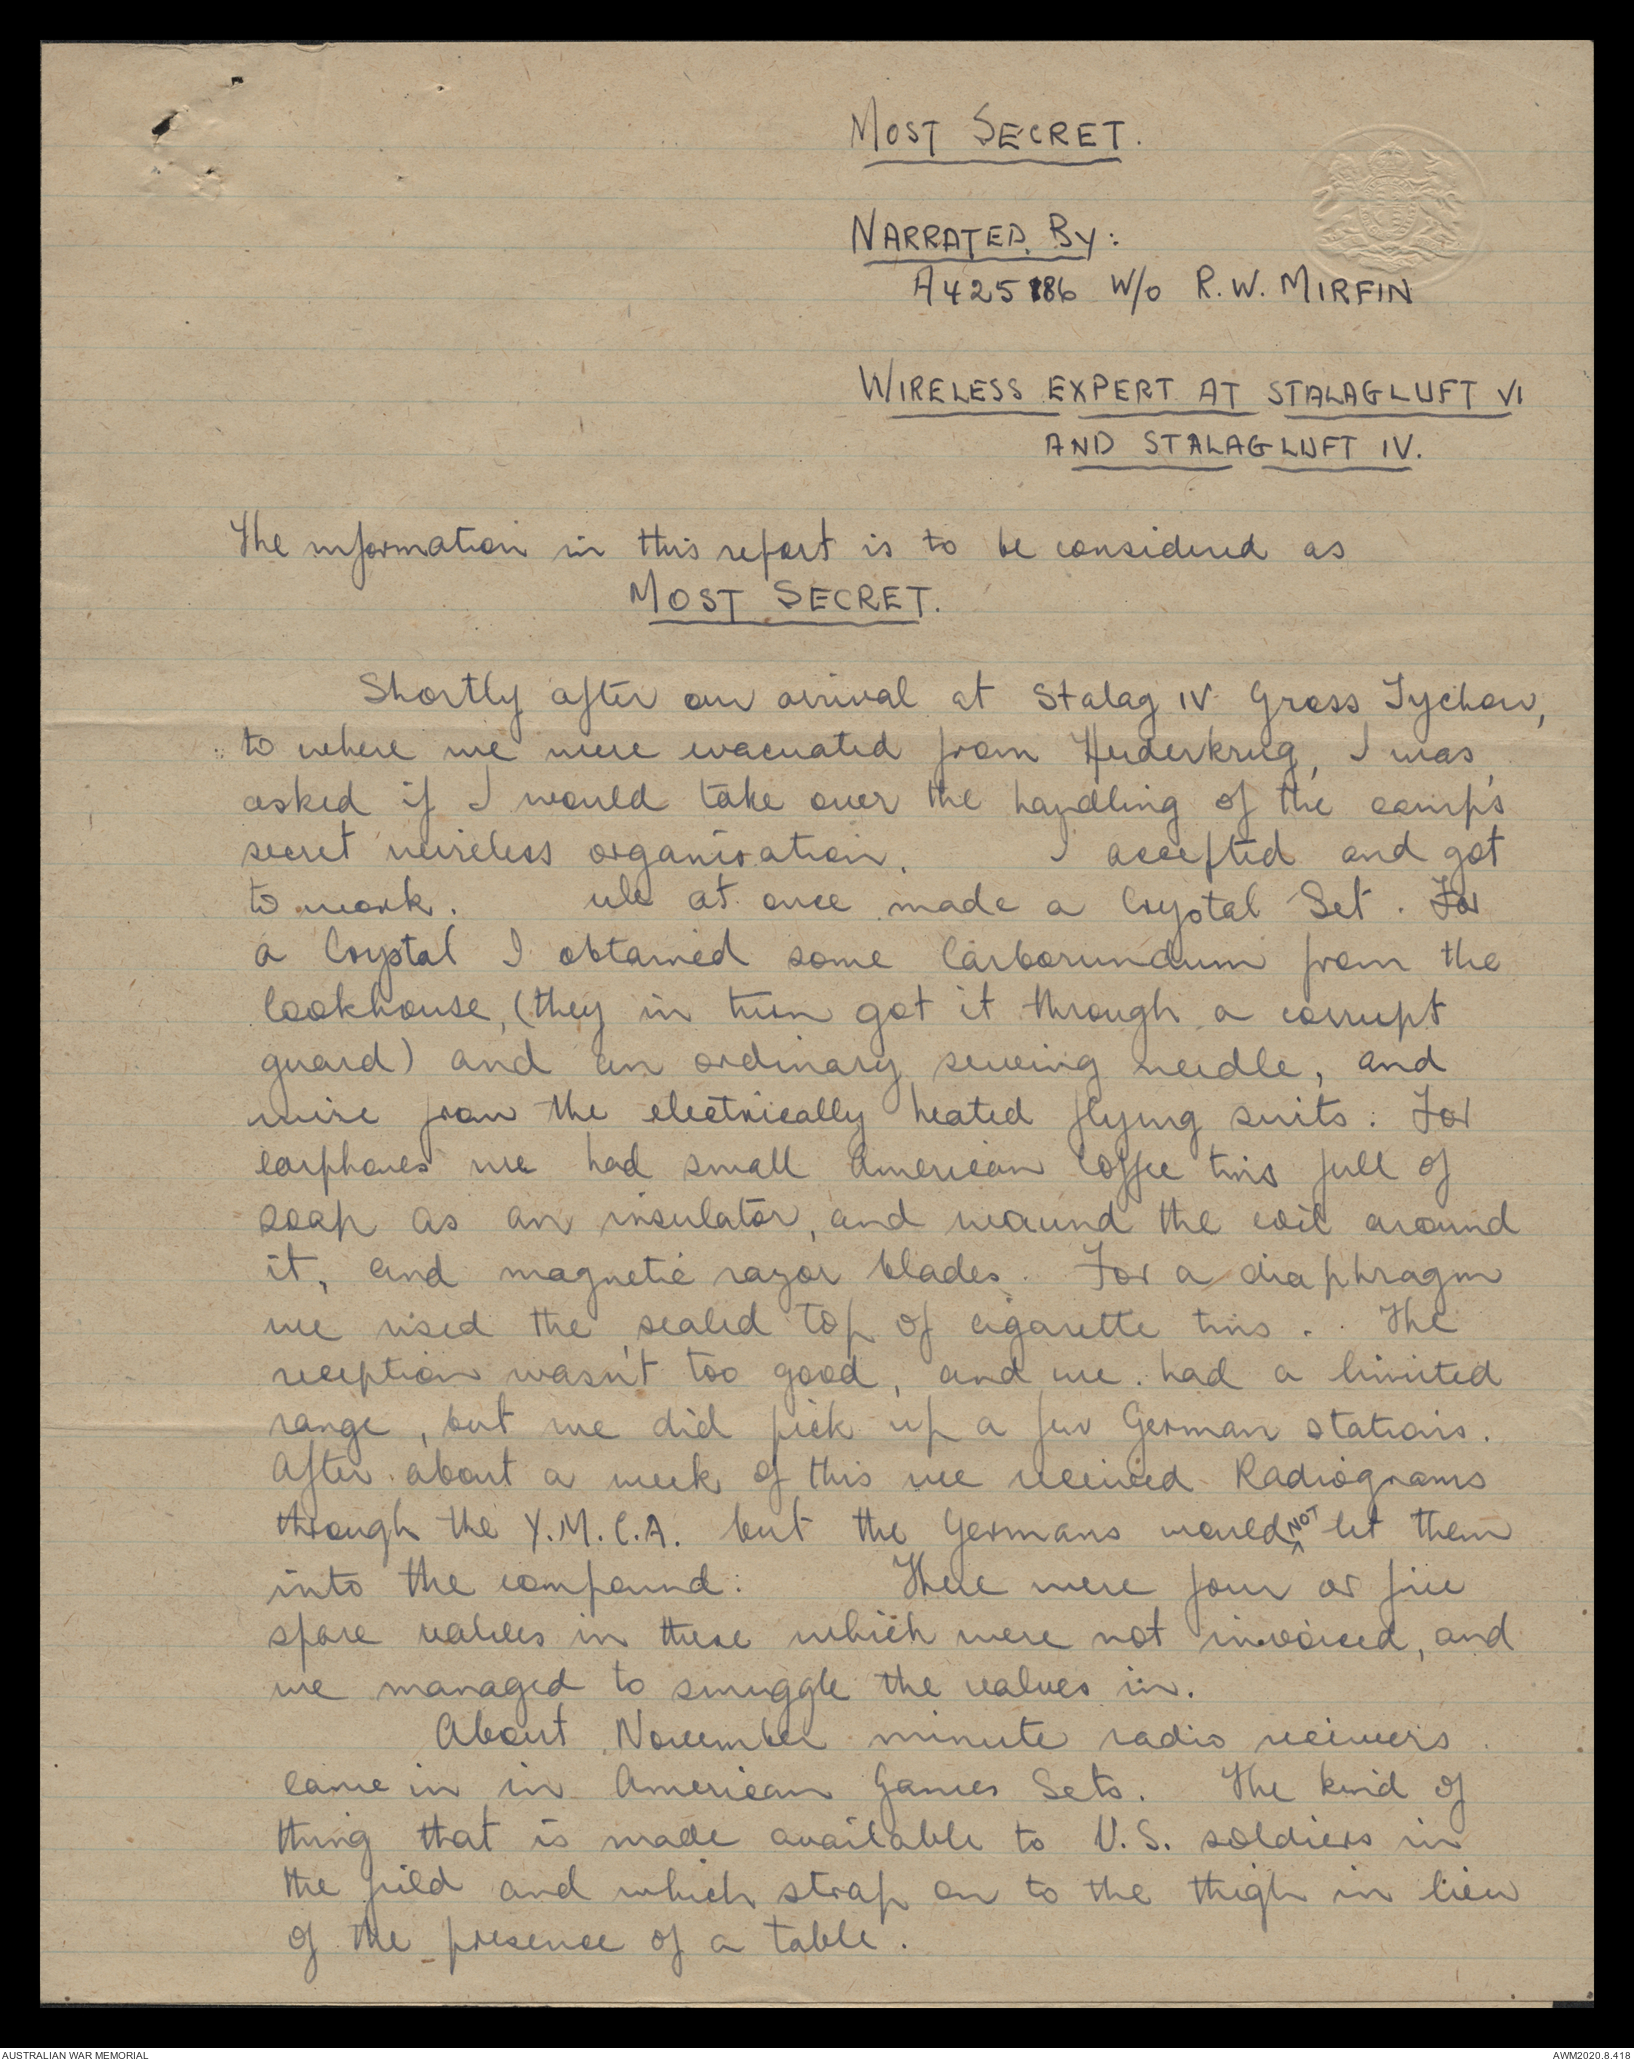 MOST SECRET.
NARRATED BY:
A425186 W/o R.W. MIRFIN
WIRELESS EXPERT AT STALAGLUFT VI
AND STALAGLUFT IV.
The information in this report is to be considered as
MOST SECRET.
Shortly after our arrival at Stalag IV Gross Tychow,
to where we were evacuated from Heiderkrug, I was
asked if I would take over the handling of the camp's
secret wireless organisation. I accepted and got
to work. We at once made a Crystal Set. For
a Crystal I obtained some Carborundum from the
Cookhouse, (they in turn got it through a corrupt
guard) and an ordinary sewing needle, and
wire from the electrically heated flying suits. For
earphones we had small American Coffee tins full of
soap as an insulator, and wound the coil around
it, and magnetic razor blades. For a diaphragm
we used the sealed top of cigarette tins. The
reception wasn't too good, and we had a limited
range, but we did pick up a few German stations.
After about a week of this we received Radiograms
through the Y.M.C.A. but the Germans would NOT let them
into the compound. There were four or five
spare valves in these which were not invoiced, and
we managed to smuggle the valves in.
About November minute radio receivers
came in in American Games Sets. The kind of
thing that is made available to U.S. soldiers in
the field and which strap on to the thigh in lieu
of the presence of a table.
AUSTRALIAN WAR MEMORIAL
AWM2020.8.418